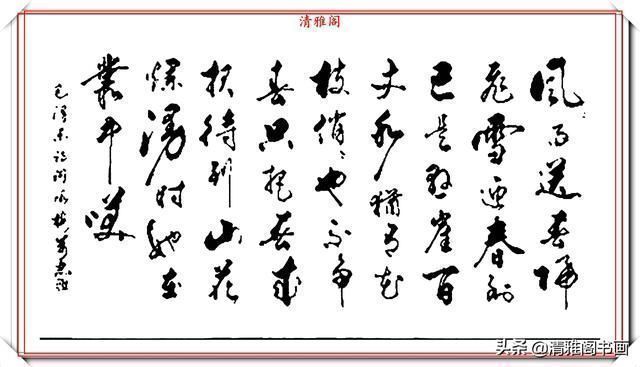 清雅阁
风雨送春归
飞雪迎春到
已是悬崖百
丈冰犹有花
枝俏々也不争
春只把春来
报待到山花
烂漫时她在
叢中笑
毛泽东词 咏梅
头条 @清雅阁书画